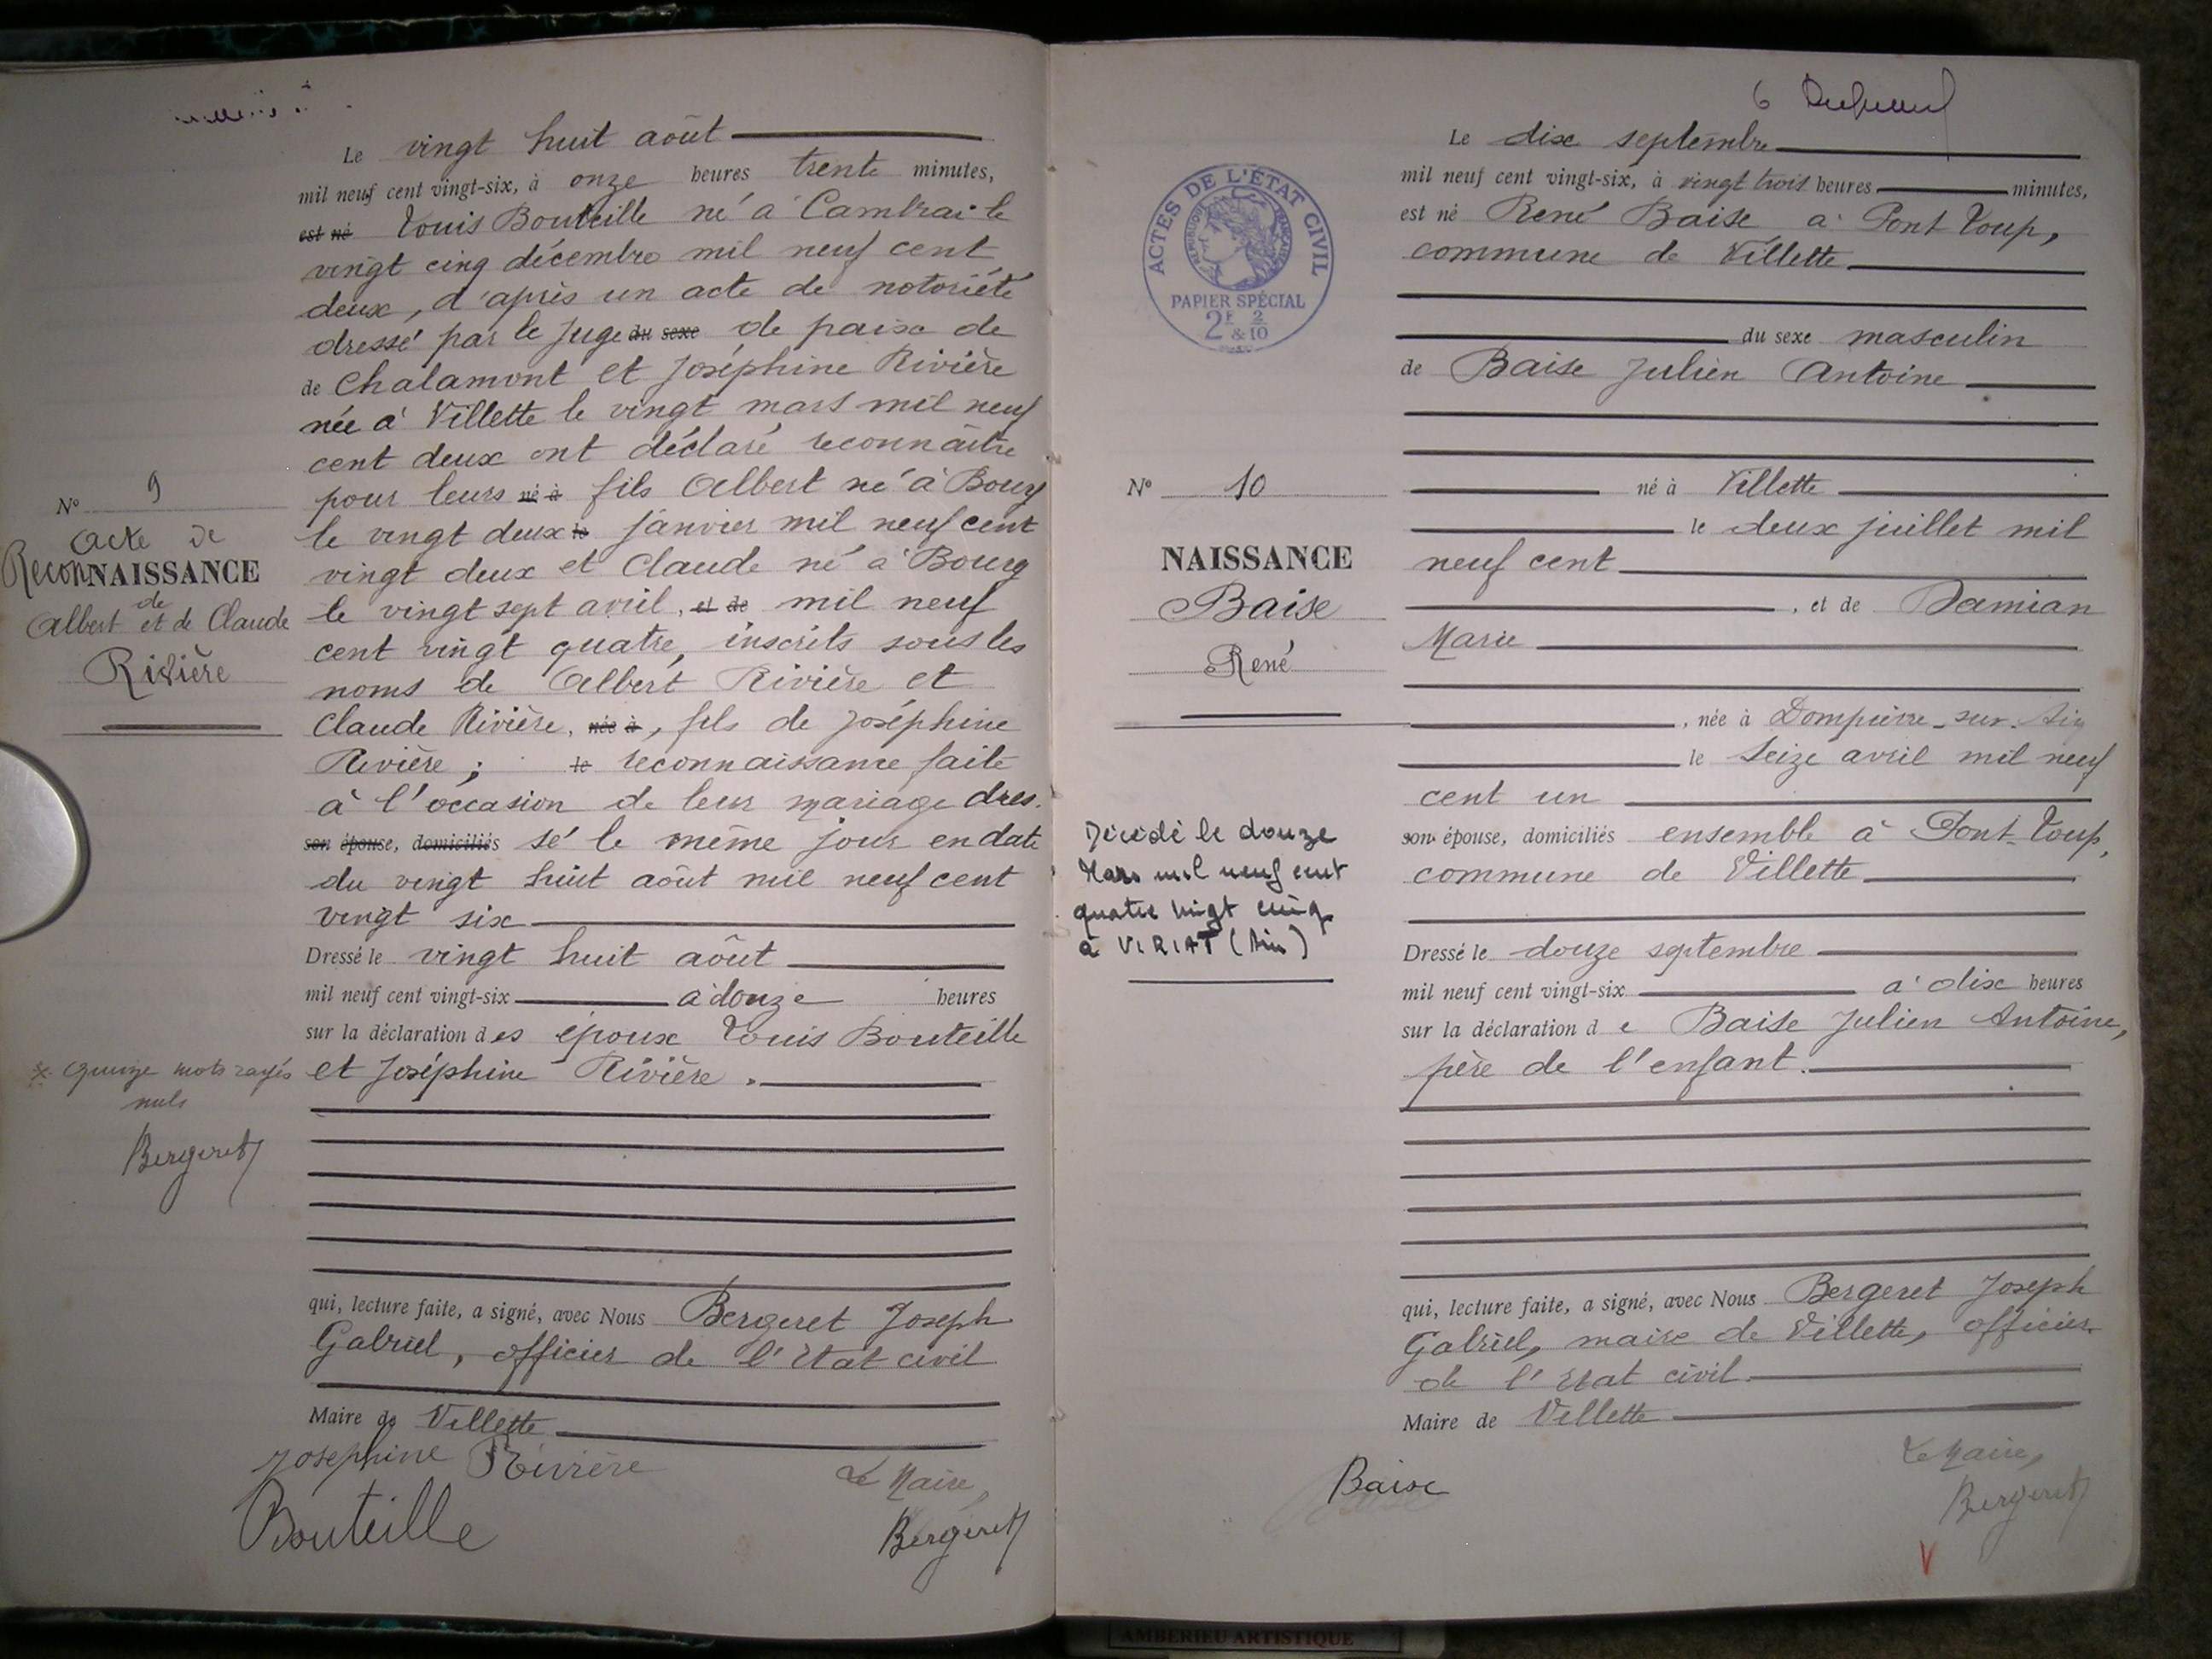 Le vingt huit août
mil neuf cent vingt-six, à onze heures trente minutes,
est né Louis Bouteille né à Cambrai le
vingt cinq décembre mil neuf cent
deux, d'après un acte de notoriété
dressé par le Juge du sexe de paix de
de Chalamont et Joséphine Rivière
née à Villette le vingt mars mil neuf
cent deux ont déclaré reconnaître
pour leurs né à fils Albert né à Bourg
le vingt deux le janvier mil neuf cent
vingt deux et Claude né à Bourg
le vingt sept avril, et de mil neuf
cent vingt quatre, inscrits sous les
noms de Albert Rivière et
Claude Rivière, née à, fils de Joséphine
Rivière ; le reconnaissance faite
à l'occasion de leur mariage dres-
son épouse, domiciliés sé le même jour en date
du vingt huit août mil neuf cent
vingt six
Dressé le vingt huit août
mil neuf cent vingt-six à douze heures
sur la déclaration des époux Louis Bouteille
et Joséphine Rivière.
qui, lecture faite, a signé, avec Nous Bergeret Joseph
Gabriel, officier de l'Etat civil
Maire de Villette
Josephine Rivière
Le Maire,
Bouteille
Bergeret
N° 9
Acte de
ReconNAISSANCE
de
Albert et de Claude
Rivière
* Quinze mots rayés
nuls
Bergeret
6
Le dix septembre
mil neuf cent vingt-six, à vingt trois heures minutes,
est né René Baise à Pont Loup,
commune de Villette
du sexe masculin
de Baise Julien Antoine
né à Villette
le deux juillet mil
neuf cent
, et de Damian
Marie
, née à Dompierre-sur-Ain
le seize avril mil neuf
cent un
son épouse, domiciliés ensemble à Pont-Loup,
commune de Villette
Dressé le douze septembre
mil neuf cent vingt-six à dix heures
sur la déclaration de Baise Julien Antoine,
père de l'enfant.
qui, lecture faite, a signé, avec Nous Bergeret Joseph
Gabriel, maire de Villette, officier
de l'Etat civil.
Maire de Villette
Le Maire,
Baise
Bergeret
V
ACTES DE L'ÉTAT CIVIL
RÉPUBLIQUE FRANÇAISE
PAPIER SPÉCIAL
2F & 2/10
N° 10
NAISSANCE
Baise
René
Décédé le douze
Mars mil neuf cent
quatre vingt cinq
à VIRIAT (Ain)
AMBERIEU ARTISTIQUE